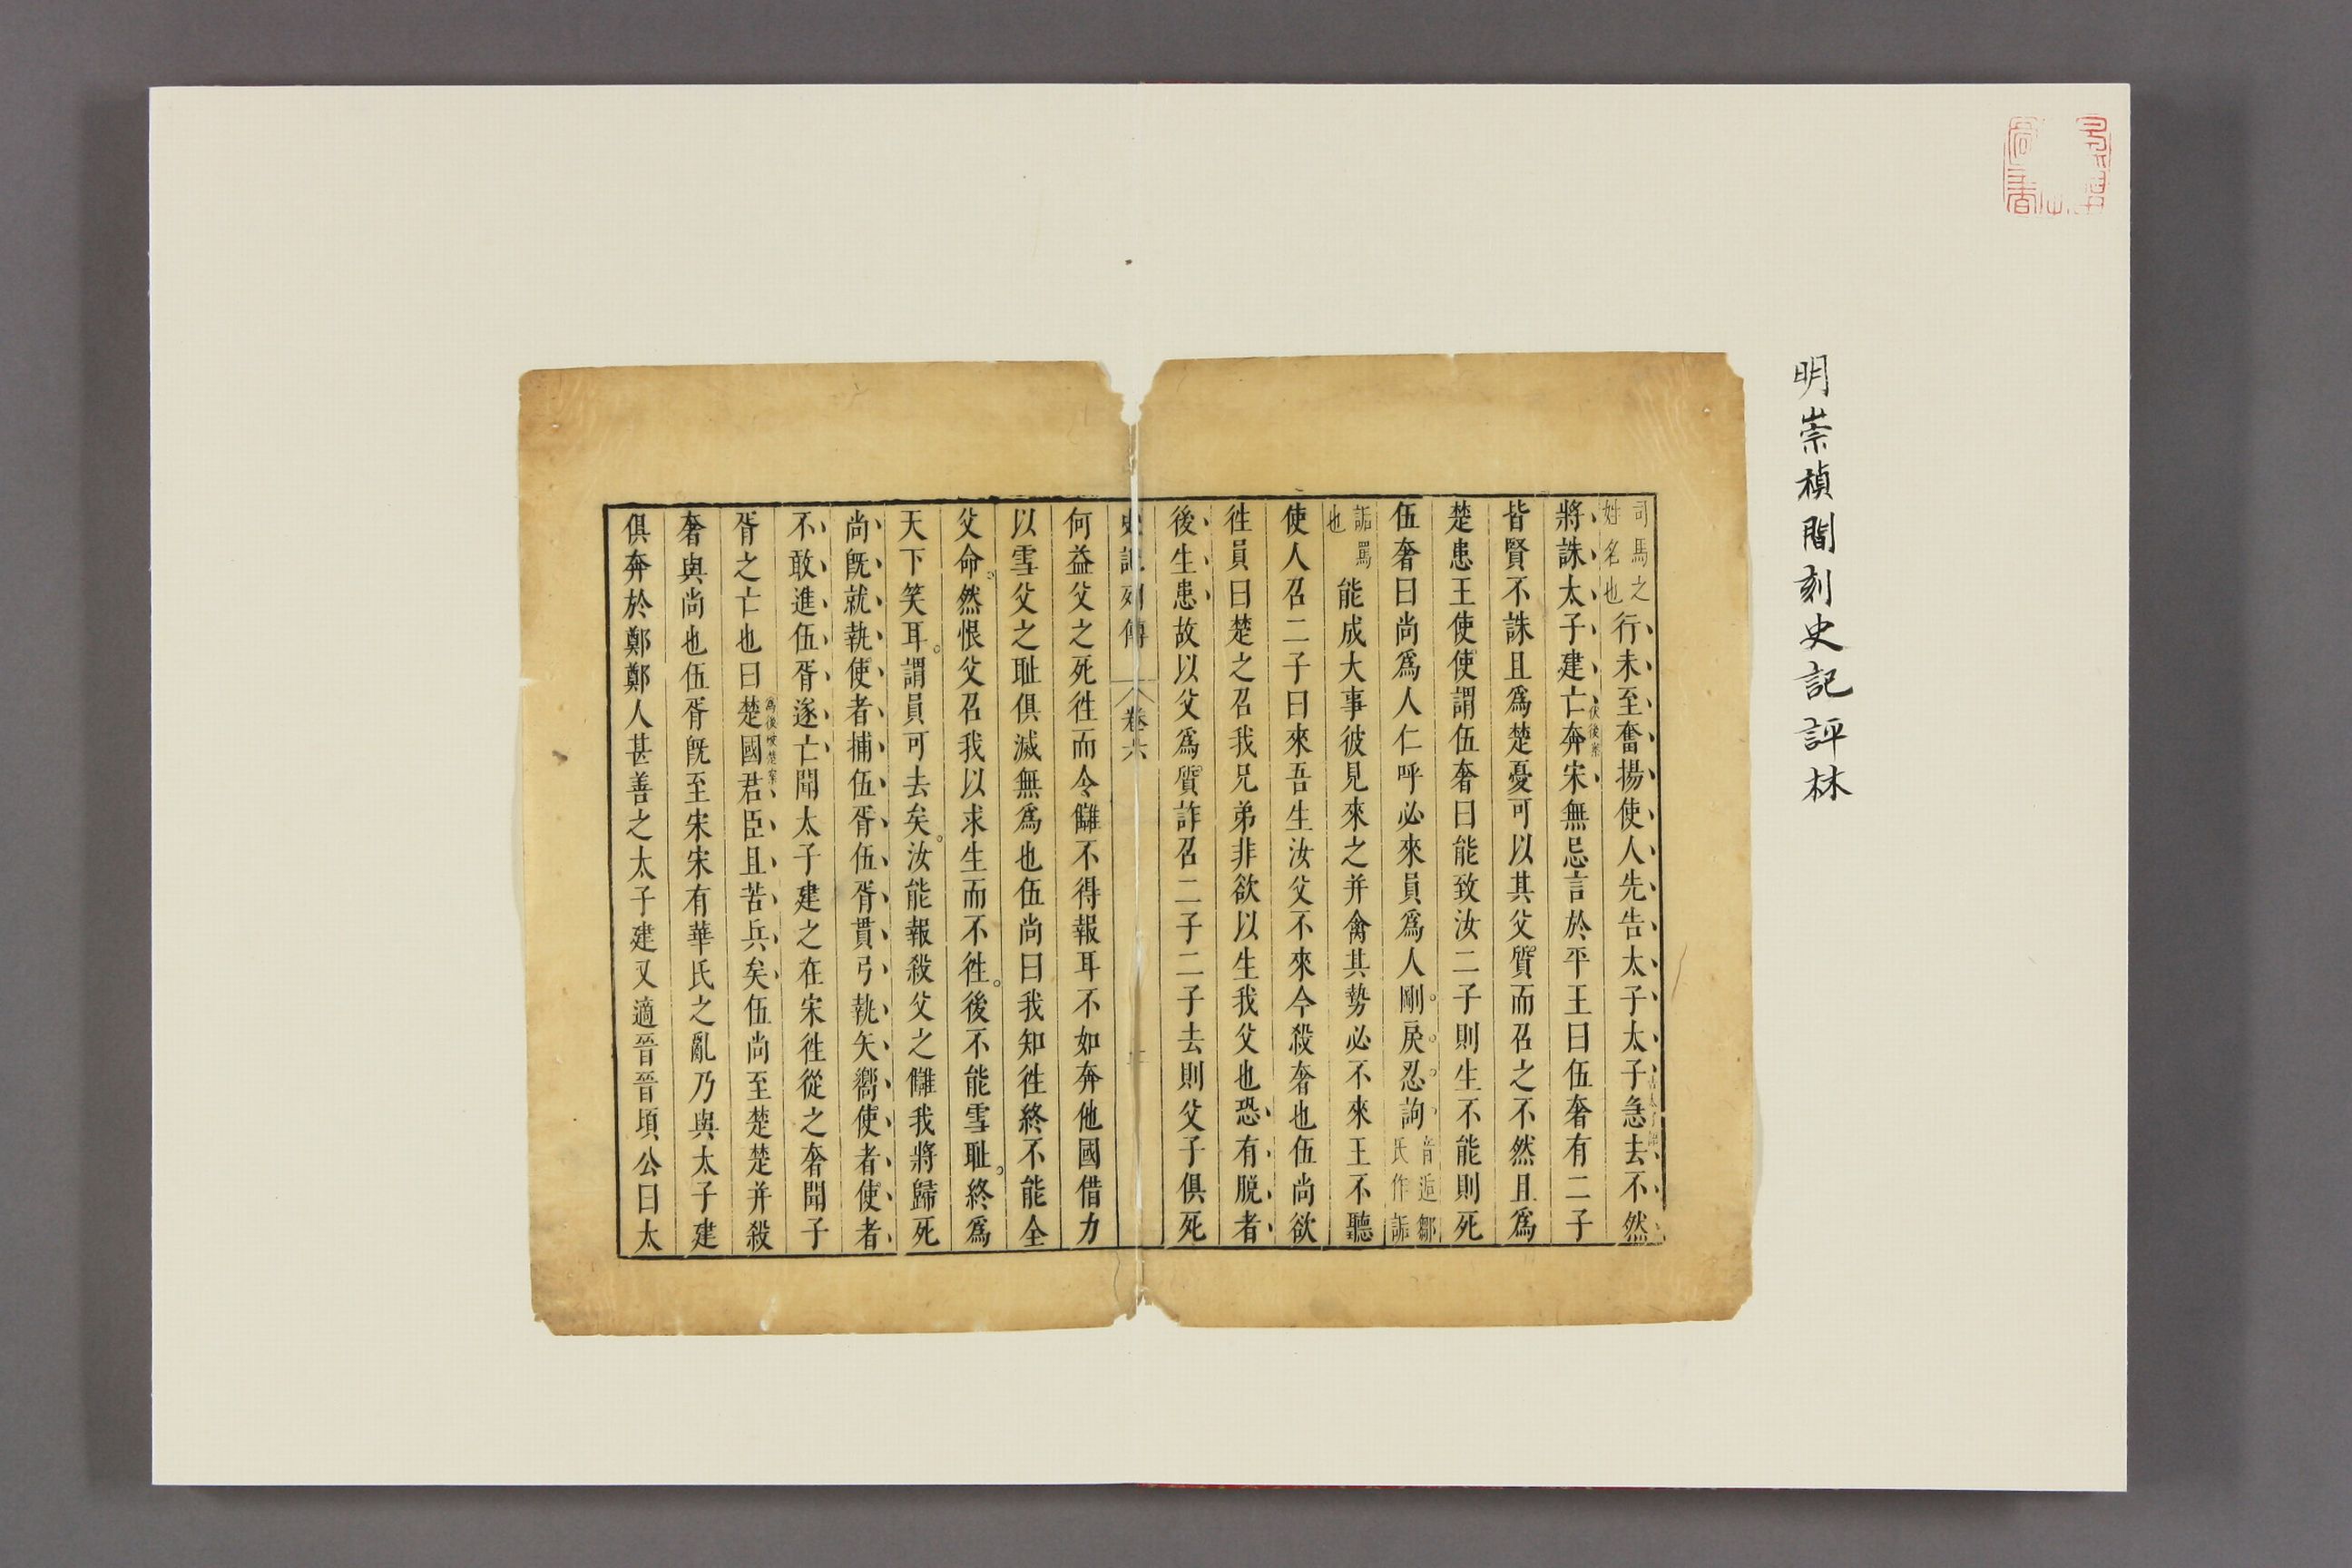 明崇禎間刻史記評林
司馬之姓名也行未至奮揚使人先告太子太子急去不然
將誅太子建亡奔宋無忌言於平王曰伍奢有二子
伏後案
皆賢不誅且爲楚憂可以其父質而召之不然且爲
楚患王使使謂伍奢曰能致汝二子則生不能則死
伍奢曰尚爲人仁呼必來員爲人剛戾忍訽音逅鄒氏作詬
詬罵也能成大事彼見來之并禽其勢必不來王不聽
使人召二子曰來吾生汝父不來今殺奢也伍尚欲
徃員曰楚之召我兄弟非欲以生我父也恐有脱者
後生患故以父爲質詐召二子二子去則父子俱死
史記列傳 卷六
何益父之死徃而令讎不得報耳不如奔他國借力
以雪父之耻俱滅無爲也伍尚曰我知徃終不能全
父命然恨父召我以求生而不徃後不能雪耻終爲
天下笑耳謂員可去矣汝能報殺父之讎我將歸死
尚旣就執使者捕伍胥伍胥貫弓執矢嚮使者使者
不敢進伍胥遂亡聞太子建之在宋徃從之奢聞子
胥之亡也曰楚國君臣且苦兵矣伍尚至楚楚并殺
奢與尚也伍胥旣至宋宋有華氏之亂乃與太子建
俱奔於鄭鄭人甚善之太子建又適晉晉頃公曰太